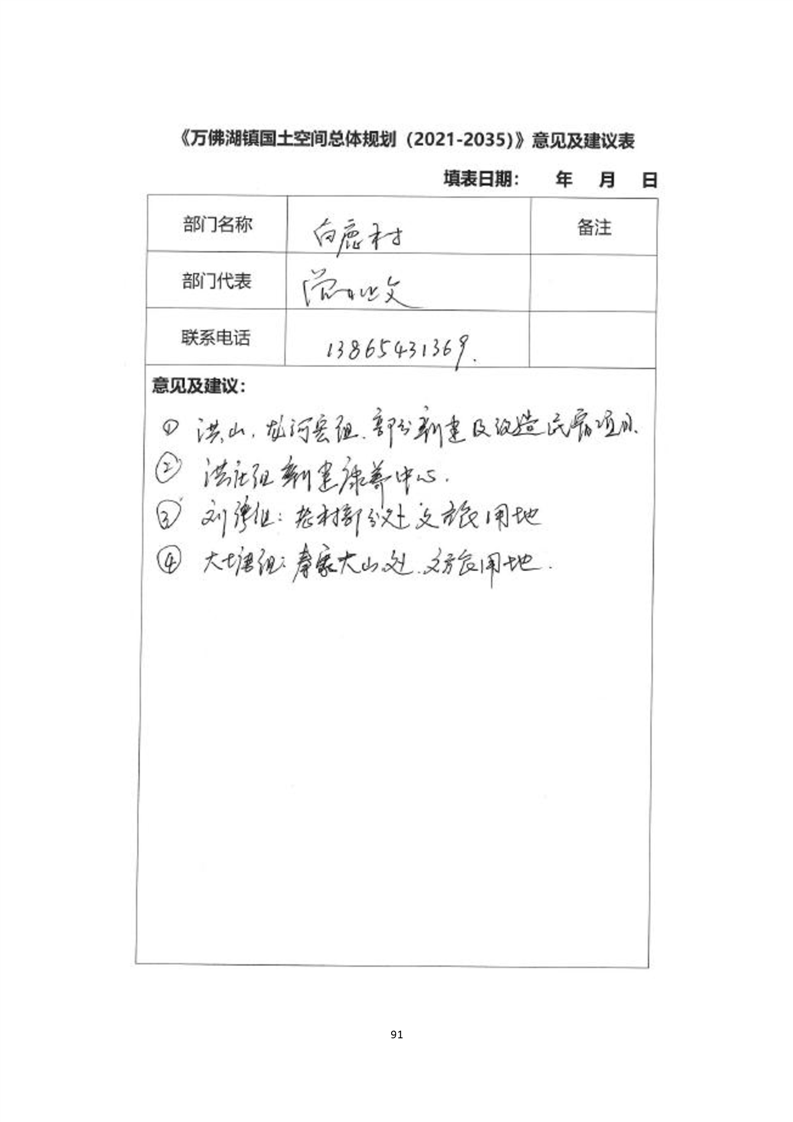 《万佛湖镇国土空间总体规划（2021-2035)》意见及建议表
填表日期： 年 月 日
部门名称 白鹿村 备注
部门代表
联系电话 13865431369.
意见及建议：
① 洪山，龙河 组、部分新建及改造民宿项目.
② 洪庄组新建康养中心.
③ 刘 组：老村部 处文旅用地
④ 大塘组：秦家大山处.文旅用地.
91